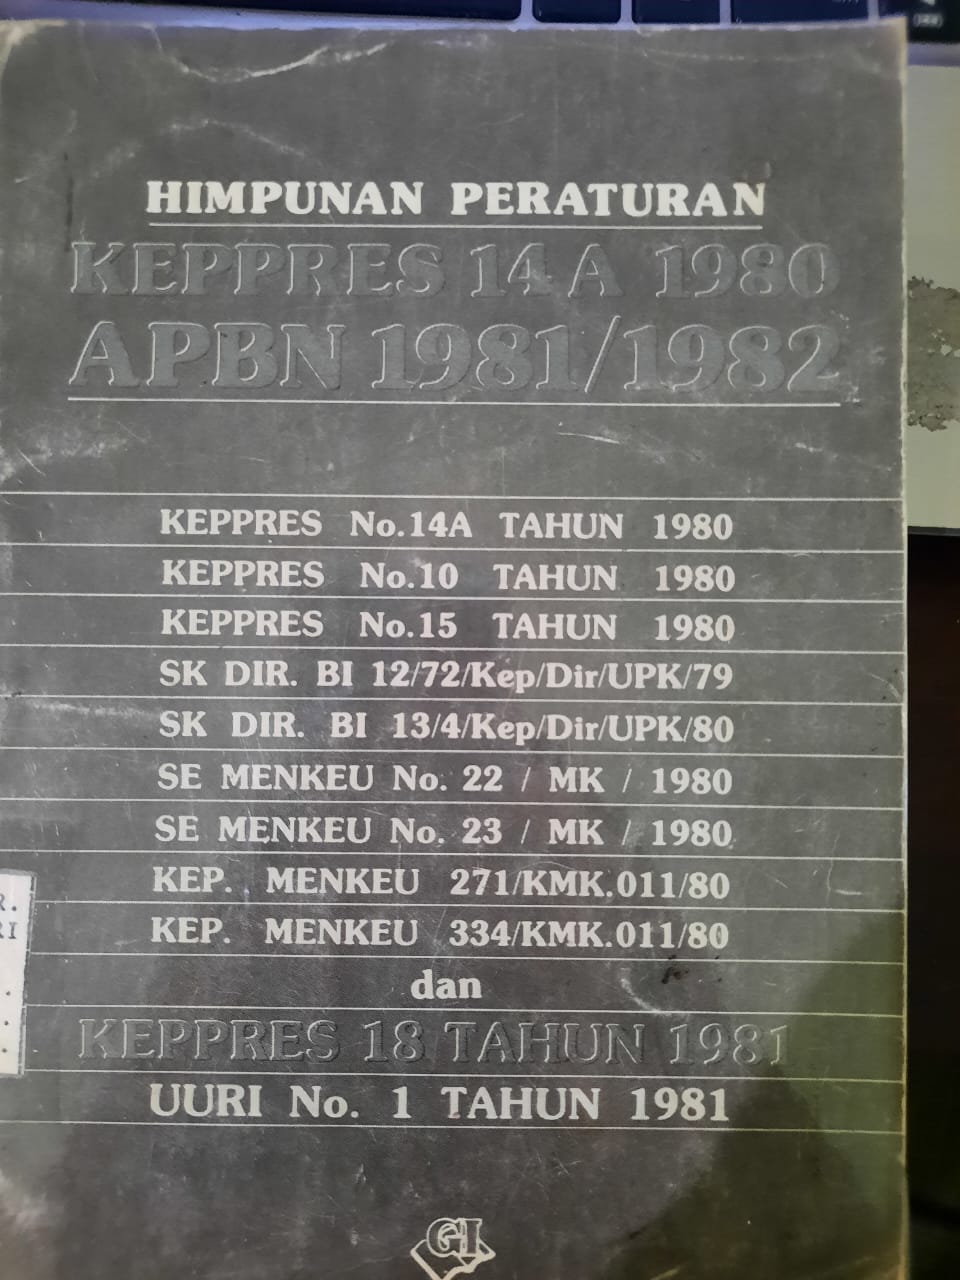 HIMPUNAN PERATURAN
KEPPRES 14 A 1980
APBN 1981/1982
KEPPRES No.14A TAHUN 1980
KEPPRES No.10 TAHUN 1980
KEPPRES No.15 TAHUN 1980
SK DIR. BI 12/72/Kep/Dir/UPK/79
SK DIR. BI 13/4/Kep/Dir/UPK/80
SE MENKEU No. 22 / MK / 1980
SE MENKEU No. 23 / MK / 1980
KEP. MENKEU 271/KMK.011/80
R.
RI
KEP. MENKEU 334/KMK.011/80
dan
KEPPRES 18 TAHUN 1981
UURI No. 1 TAHUN 1981
GI